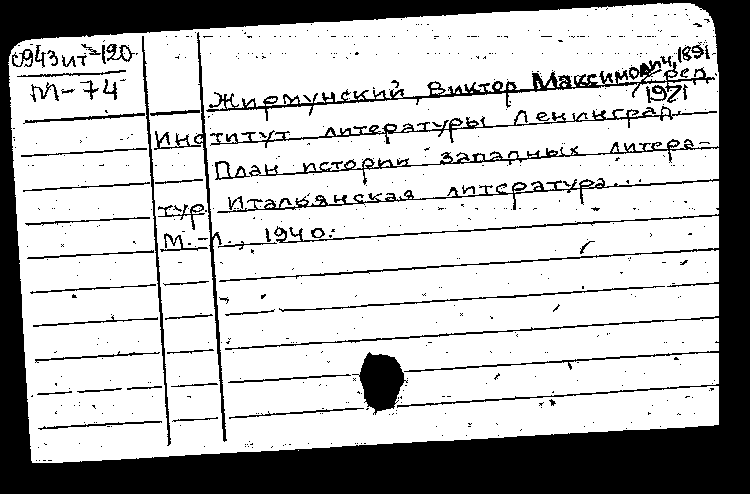 0943ит-190
М-74
Жирмунский, Виктор Максимович, 1891
ред.
1971
Институт литературы Ленинград.
План истории западных литера-
тур. Итальянская литература...
М.-Л., 1940.